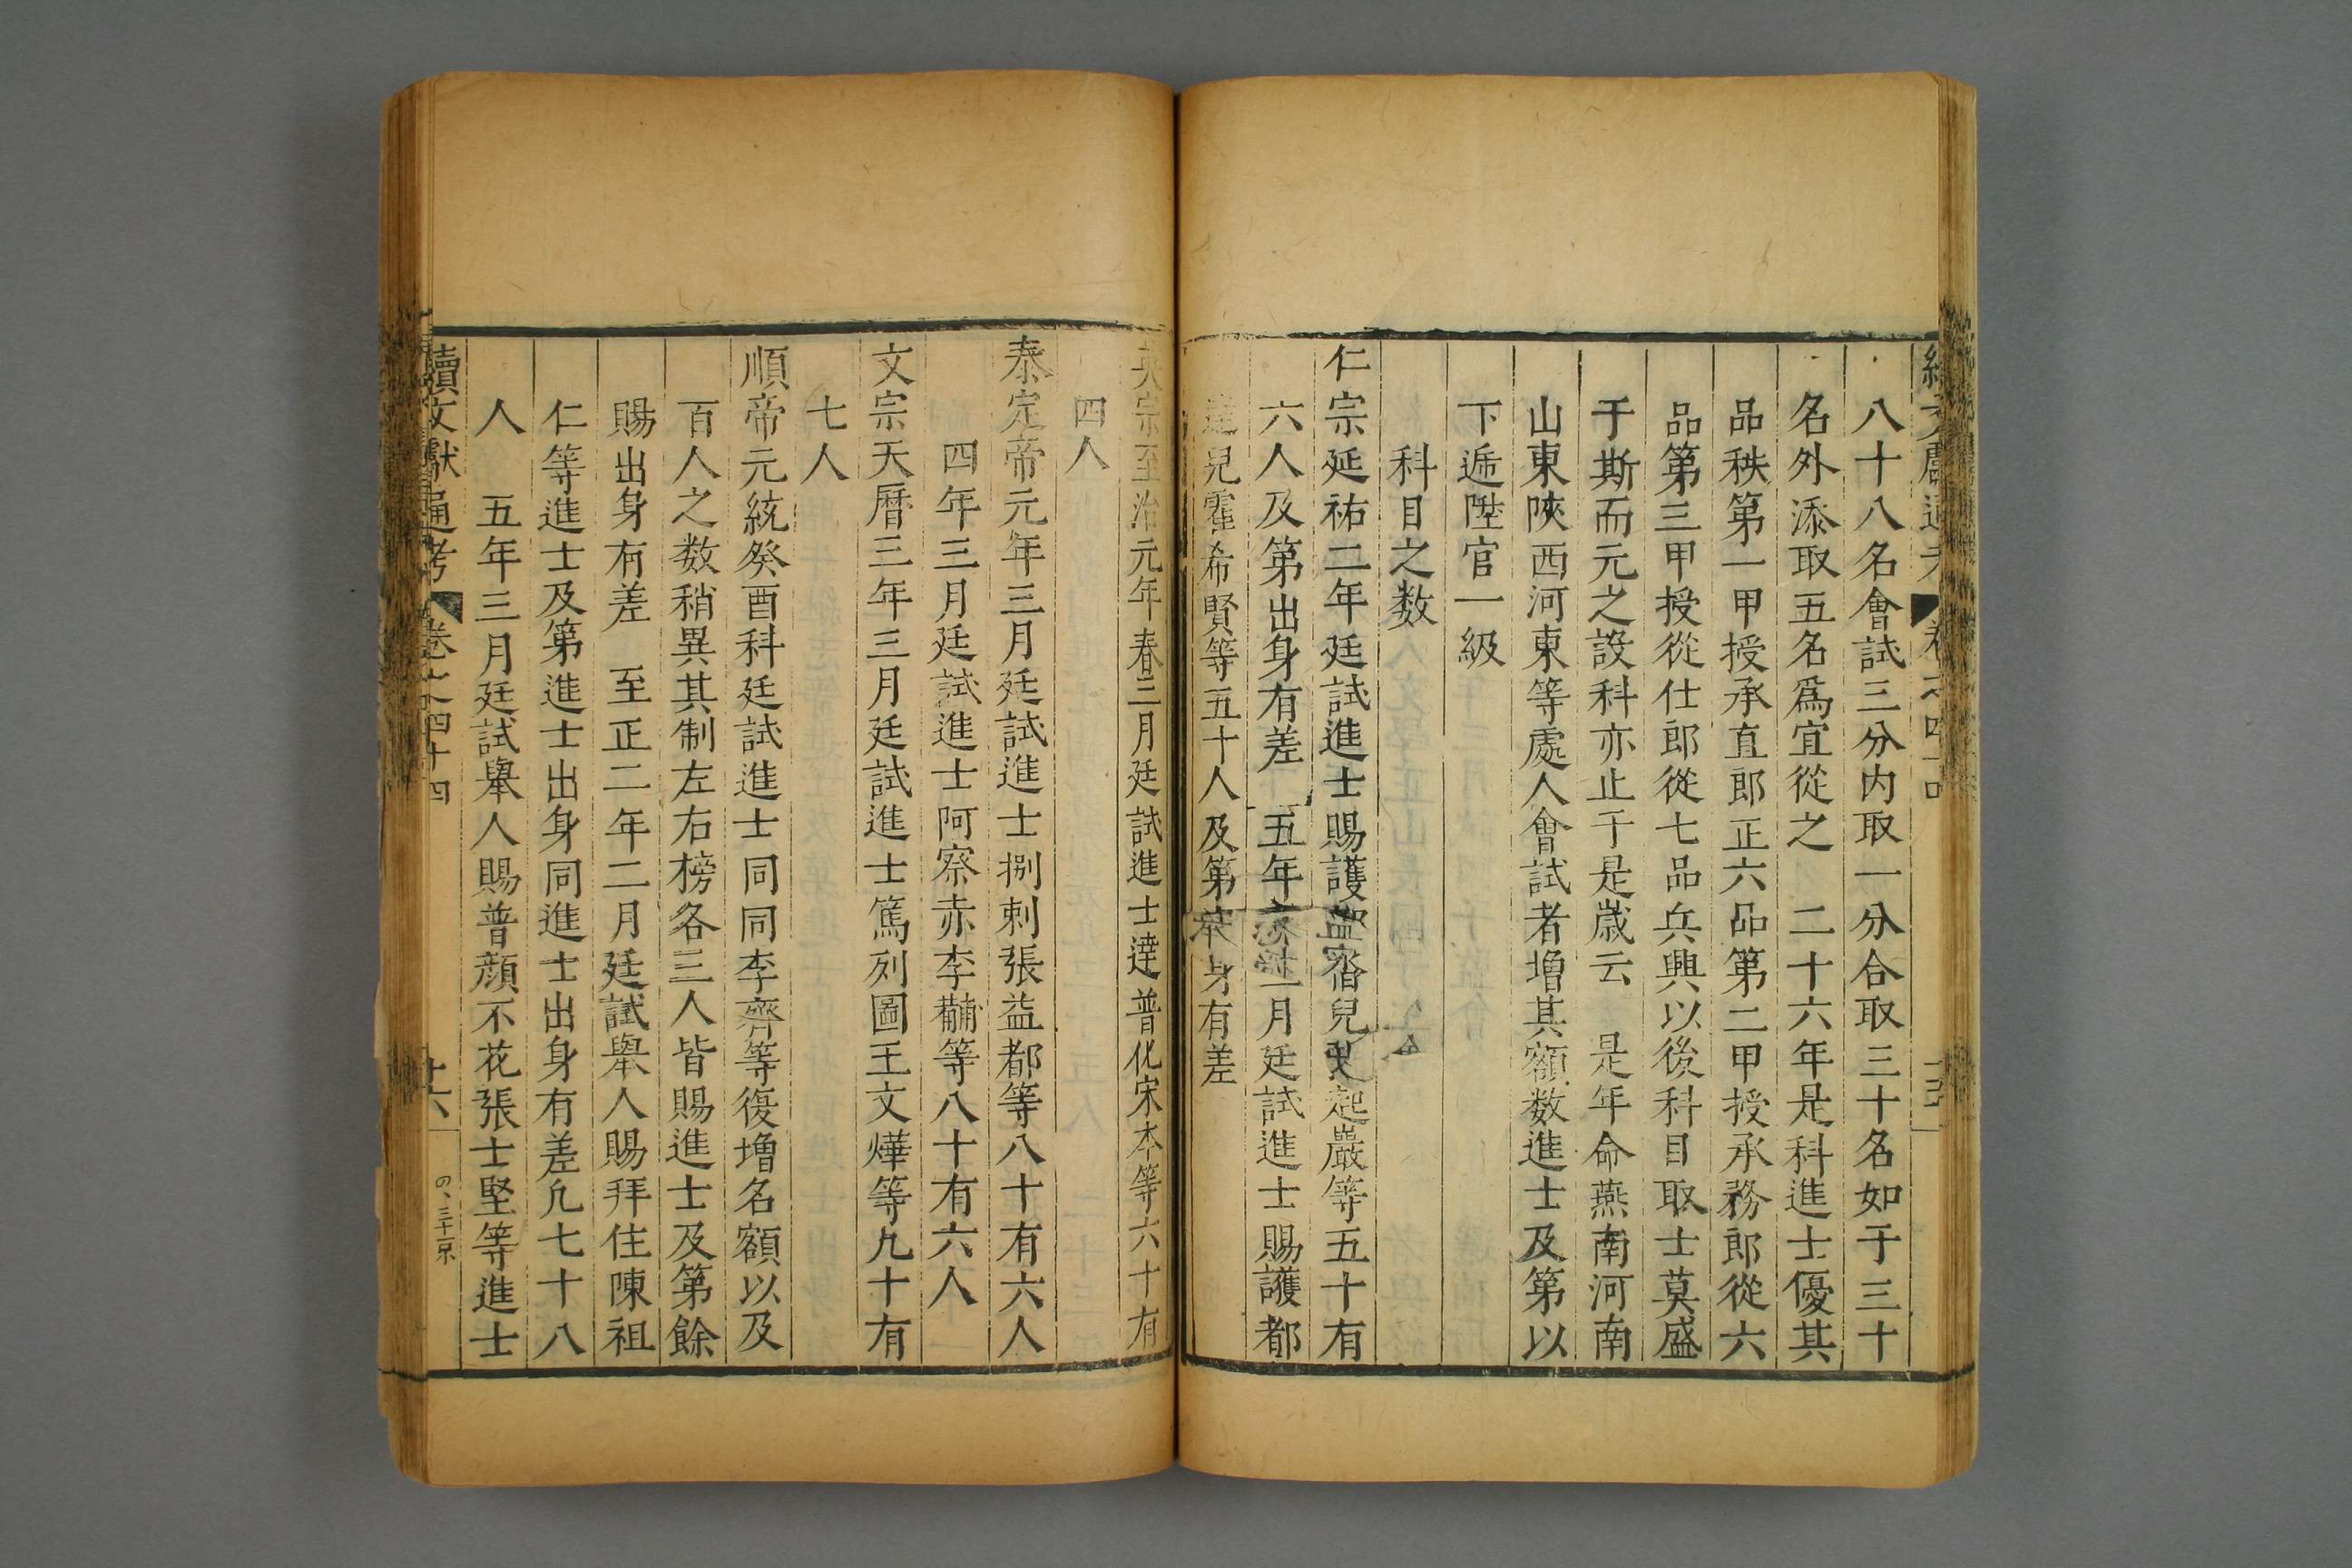 八十八名會試三分内取一分合取三十名如于三十
名外添取五名爲宜從之　二十六年是科進士優其
品秩第一甲授承直郎正六品第二甲授承務郎從六
品第三甲授從仕郎從七品兵興以後科目取士莫盛
于斯而元之設科亦止于是歳云　是年命燕南河南
山東陝西河東等處人會試者增其額数進士及第以
下遞陞官一級
科目之数
仁宗延祐二年廷試進士賜護都沓兒張起巖等五十有
六人及第出身有差　五年　月廷試進士賜護都
達兒霍希賢等五十人及第　身有差
英宗至治元年春三月廷試進士達普化宋本等六十有
四人
泰定帝元年三月廷試進士捌剌張益都等八十有六人
四年三月廷試進士阿察赤李黼等八十有六人
文宗天曆三年三月廷試進士篤列圖王文燁等九十有
七人
順帝元統癸酉科廷試進士同同李齊等復增名額以及
百人之数稍異其制左右榜各三人皆賜進士及第餘
賜出身有差　至正二年二月廷試舉人賜拜住陳祖
仁等進士及第進士出身同進士出身有差凢七十八
人　五年三月廷試舉人賜普顔不花張士堅等進士
續文獻通考　卷之四十四　十六　三十京